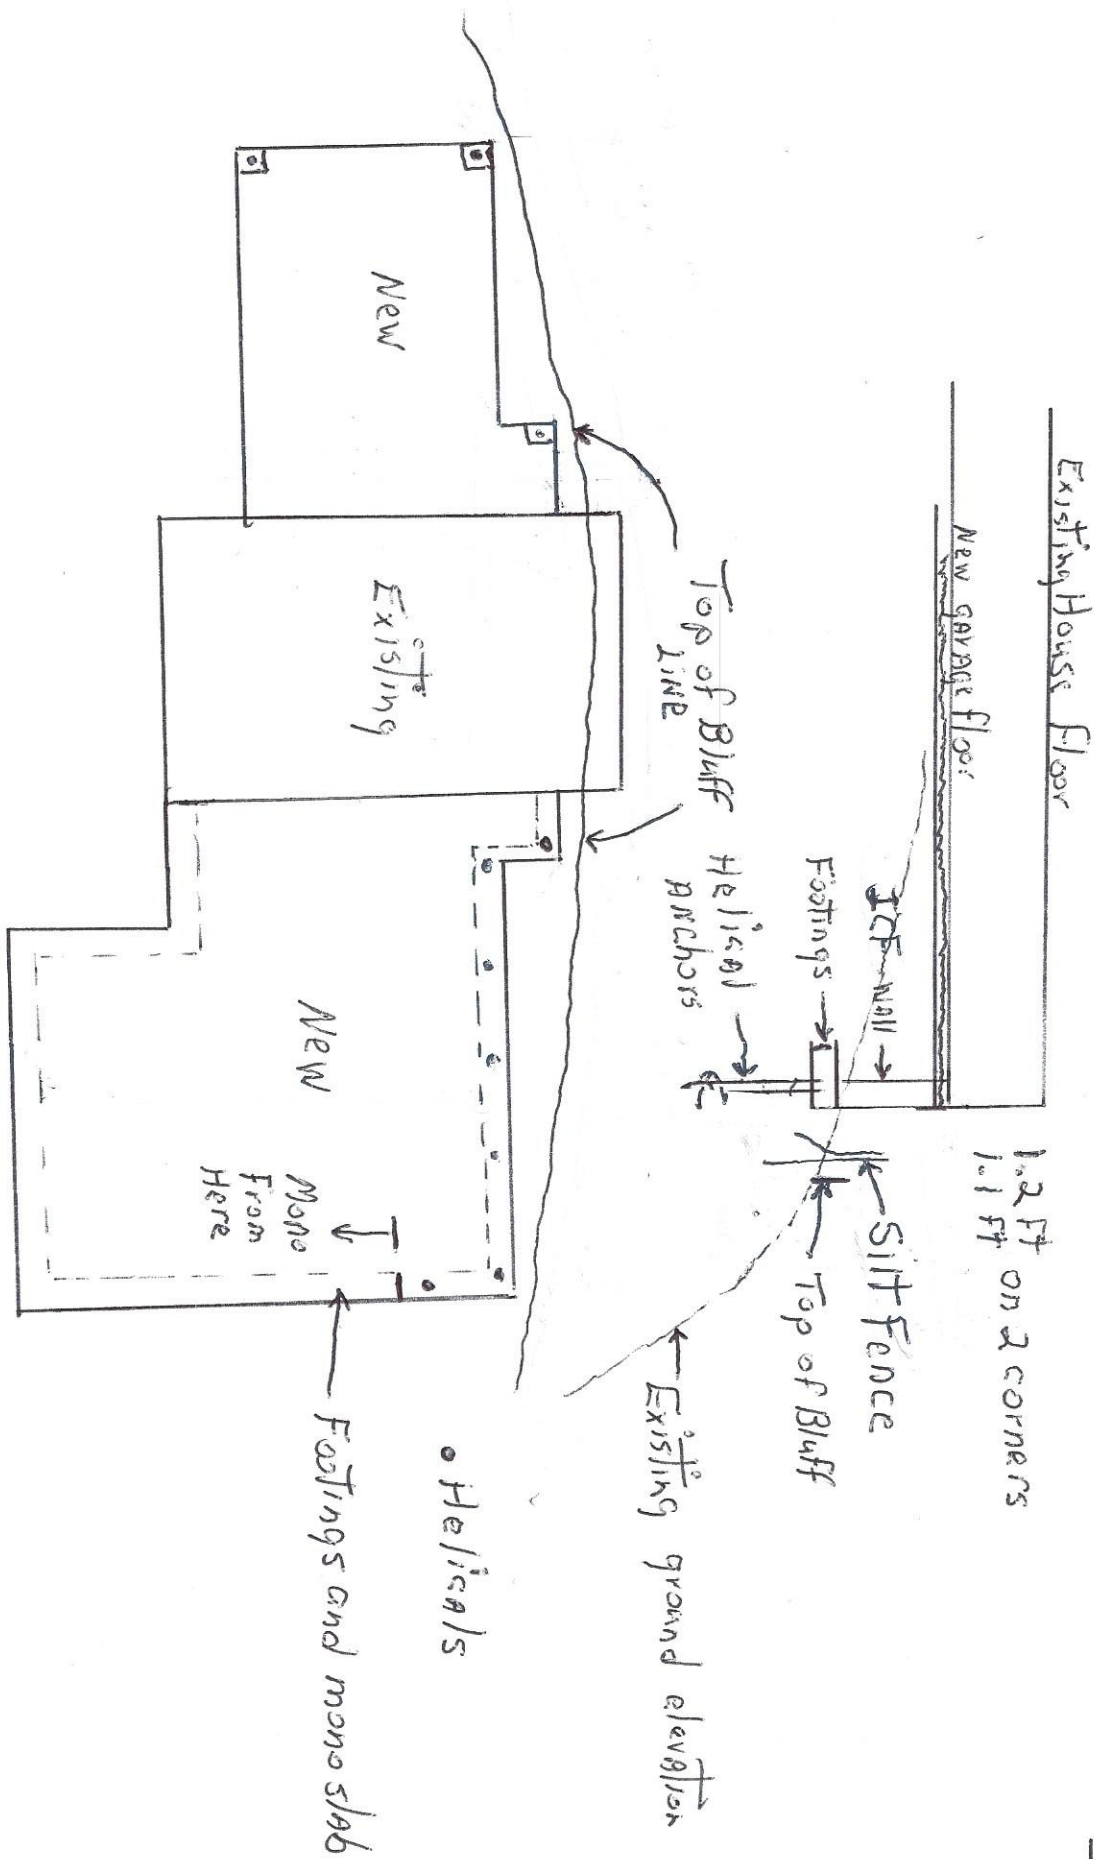 Existing House floor
New GARAGE floor
1.2 Ft on 2 corners
1.1 Ft
ICF WAll
Footings
HelicAl
ANChors
Silt Fence
Top of Bluff
Existing ground elevation
Top of Bluff
LINE
New
Existing
New
Mono
From
Here
• HelicAls
Footings and mono slAb